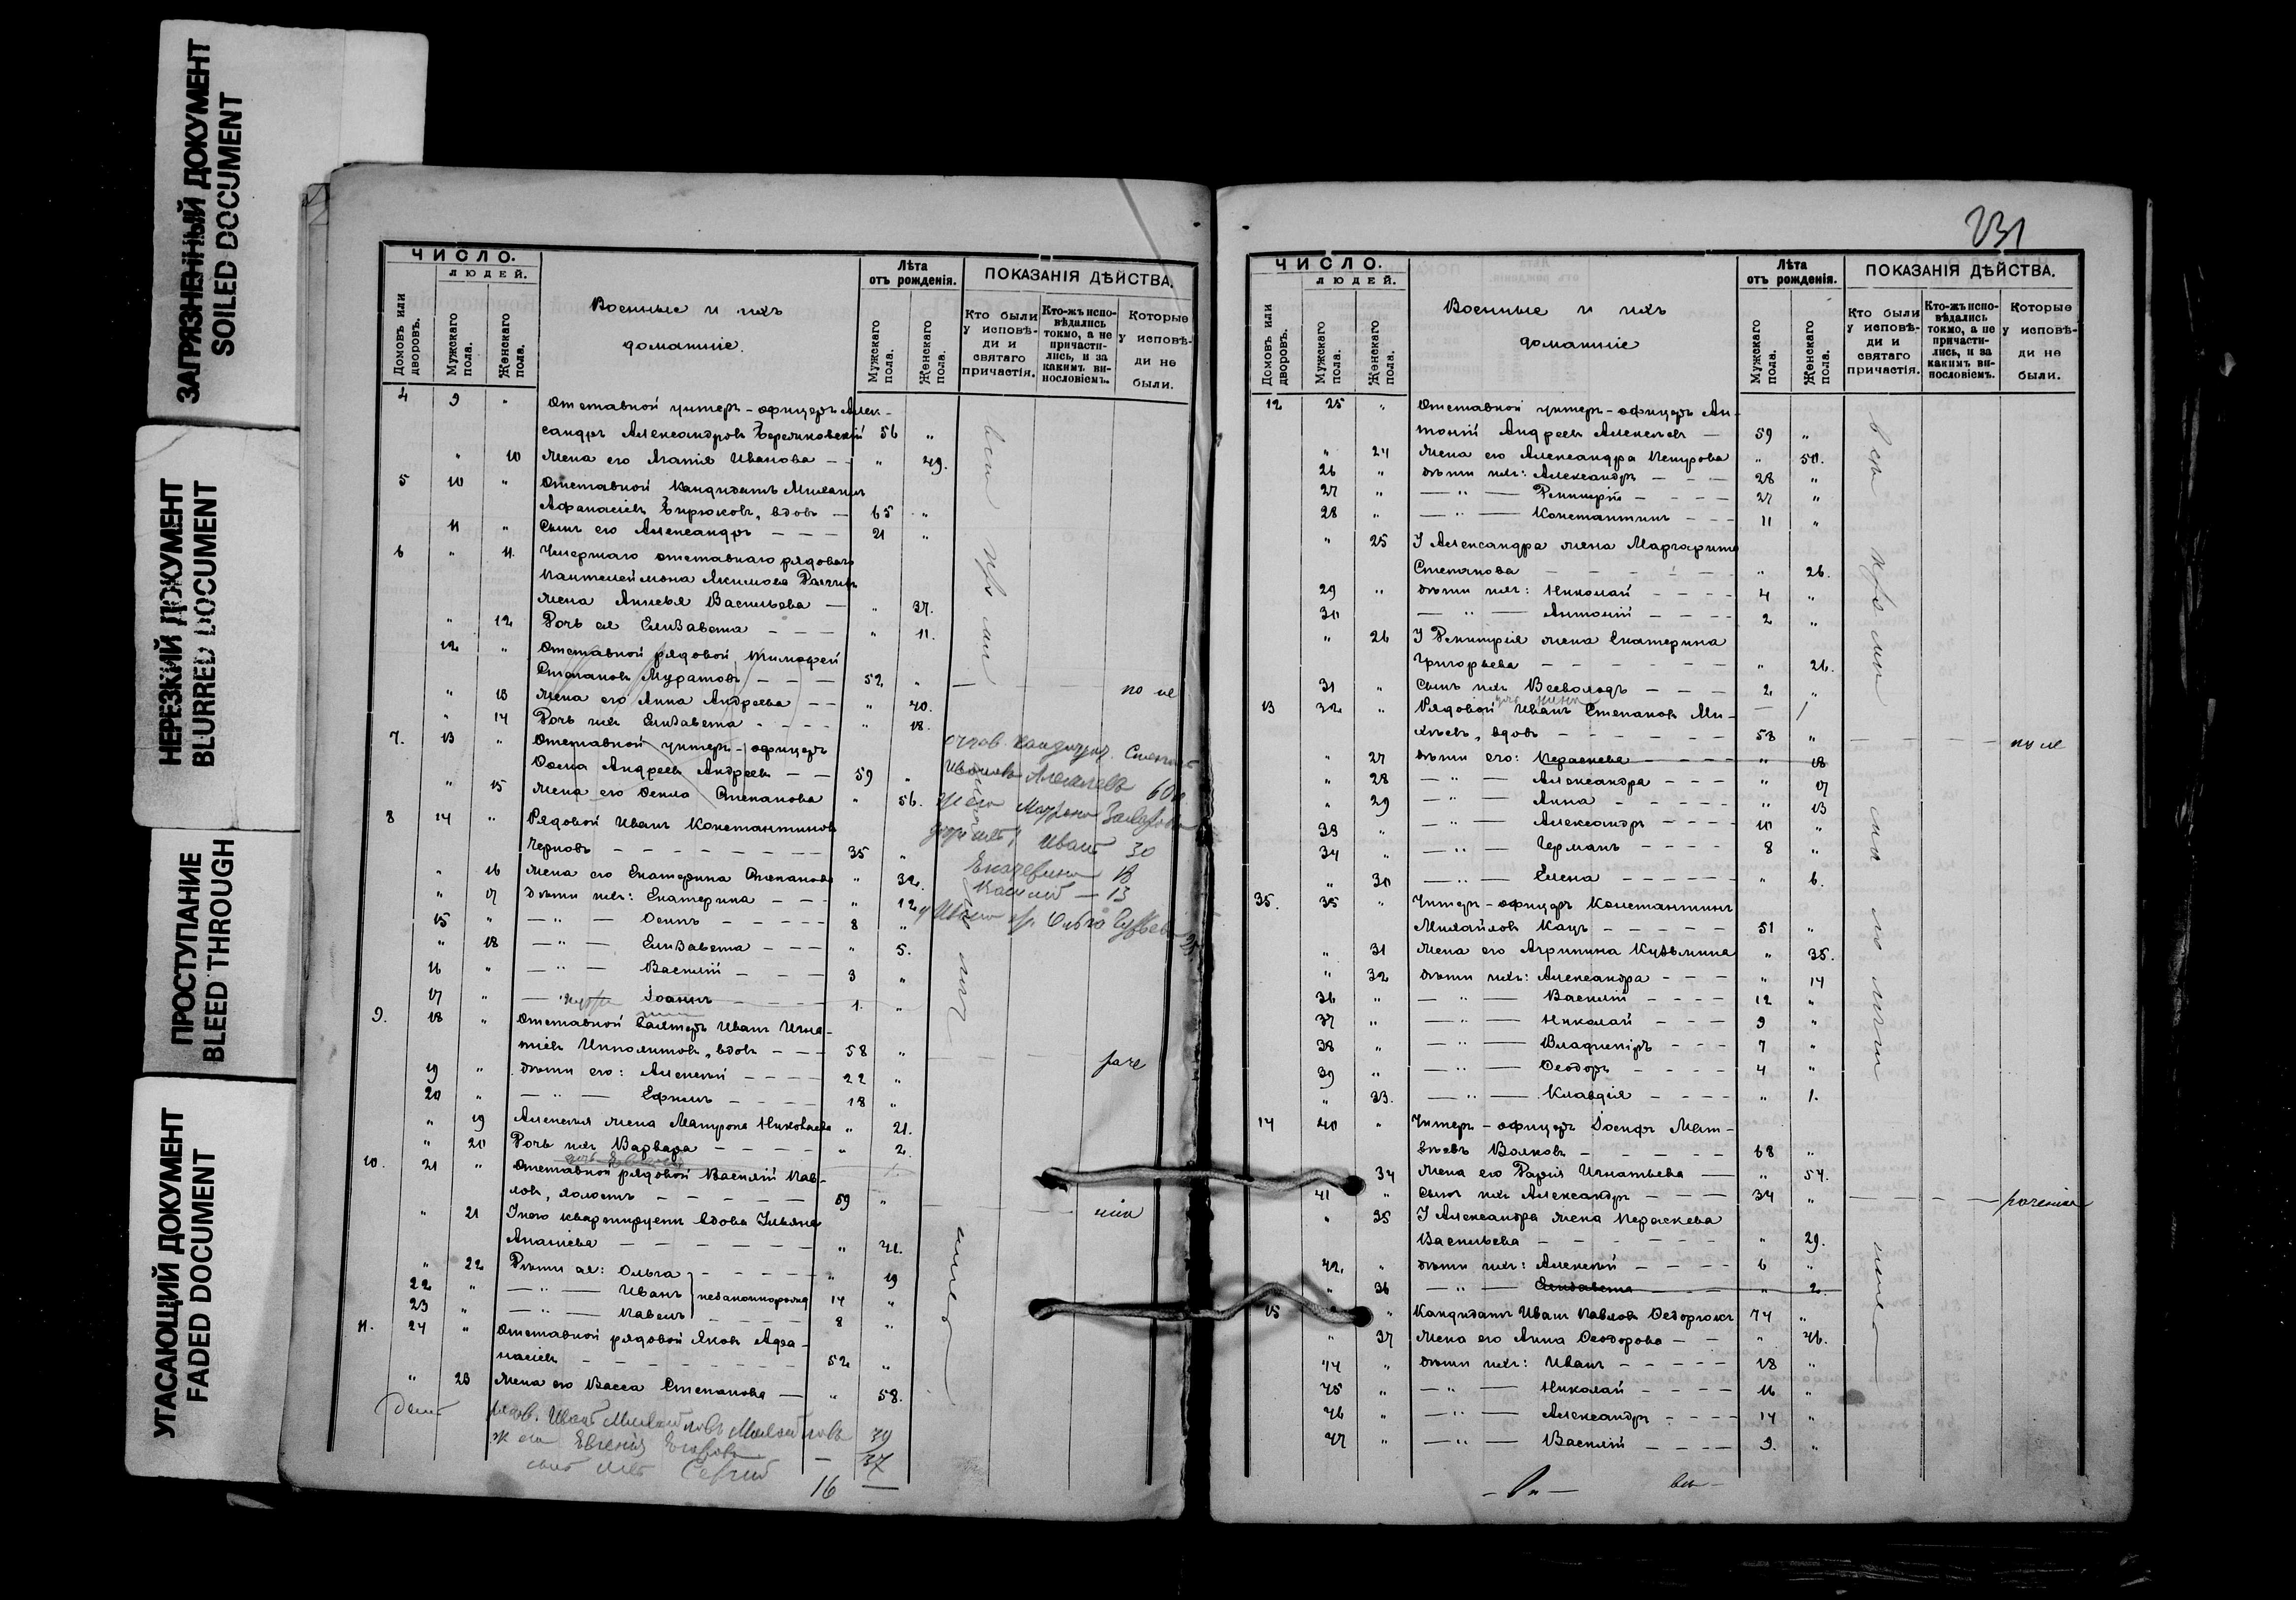 ЗАГРЯЗНЕННЫЙ ДОКУМЕНТ
SOILED DOCUMENT
НЕРЕЗКИЙ ДОКУМЕНТ
BLURRED DOCUMENT
ПРОСТУПАНИЕ
BLEED THROUGH
УГАСАЮЩИЙ ДОКУМЕНТ
FADED DOCUMENT
ЧИСЛО.
ЛЮДЕЙ.
Домовъ или дворовъ.
Мужскаго пола.
Женскаго пола.
Военные и ихъ
домашніе.
Лѣта
отъ рожденія.
Мужскаго пола.
Женскаго пола.
ПОКАЗАНІЯ ДѢЙСТВА.
Кто были у исповѣди и святаго причастія.
Кто-жъ исповѣдались токмо, а не причастились, и за какимъ винословіемъ.
Которые у исповѣди не были.
4 9 " Отставной унтеръ-офицеръ Алек-
сандръ Александровъ 56 "
" 10 Жена его Агапія Иванова — — " 49.
5 10 " Отставной кандидатъ Михаилъ
Афанасіевъ Бирюковъ, вдовъ — 65 "
11 " Сынъ его Александръ — — — 21 "
6 " 11. Умершаго отставнаго рядоваго
Пантелеймона Акимова
жена Васильева — " 37.
" 12 Дочь ея Елизавета — — — " 11.
12 " Отставной рядовой Тимофей
Степановъ Муратовъ — — — 52 "
" 13 Жена его Анна Андреева — — " 40.
" 14 Дочь ихъ Елизавета — — — — " 18.
7. 13 " Отставной унтеръ-офицеръ
Андреевъ Андреевъ — — 59 "
" 15 Жена его Степанова " 56.
Алексѣевъ 60
Иванъ 30
Екатерина 18
13
8 14 " Рядовой Иванъ Константиновъ
Черновъ — — — — — — — 35 "
" 16 Жена его Екатерина Степанова " 32.
" 17 Дѣти ихъ: Екатерина — — — " 12
15 " — " — Осипъ — — — — — 8 "
" 18 — " — Елизавета — — — " 5.
16 " — " — Василій — — — 3 "
17 " — Іоаннъ — — — — 1. "
9. 18 " Отставной Иванъ Игна-
тіевъ Ипполитовъ, вдовъ — — — 58 "
19 " Дѣти его: Алексѣй — — — — 22 "
20 " — " — Ефимъ — — — — 18 "
" 19 Алексѣя жена Матрона Николаева " 21.
" 20 Дочь ихъ Варвара — — — — — " 2.
10. 21 " Отставной рядовой Василій Пав-
ловъ, холостъ — — — — — 59 "
" 21 У него квартируетъ вдова Ульяна
Ананіева — — — — — — " 41.
" 22 Дѣти ея: Ольга — — — — — " 19
22 " — " — Иванъ незаконнорожд 14 "
23 " — " — Павелъ — — — — 8 "
11. 24 " Отставной рядовой Яковъ Афа-
насіевъ — — — — — — — 52 "
" 23 Жена его Васса Степанова — " 58.
рядов. Иванъ Михайловъ Михайловъ 39
ж его Евгенія — 37
сынъ ихъ Сергѣй 16
231
ЧИСЛО.
ЛЮДЕЙ.
Домовъ или дворовъ.
Мужскаго пола.
Женскаго пола.
Военные и ихъ
домашніе
Лѣта
отъ рожденія.
Мужскаго пола.
Женскаго пола.
ПОКАЗАНІЯ ДѢЙСТВА.
Кто были у исповѣди и святаго причастія.
Кто-жъ исповѣдались токмо, а не причастились, и за какимъ винословіемъ.
Которые у исповѣди не были.
12 25 " Отставной унтеръ-офицеръ Ан-
тоній Андреевъ Алексѣевъ — 59 "
" 24 Жена его Александра Петрова " 50.
26 " Дѣти ихъ: Александръ — — — 28 "
27 " — " — Димитрій — — — — 27 "
28 " — " — Константинъ — — — 11 "
" 25 У Александра жена Маргарита
Степанова — — — — — — " 26.
29 " Дѣти ихъ: Николай — — — — 4 "
30 " — " — Антоній — — — — 2 "
" 26 У Димитрія жена Екатерина
Григорьева — — — — — — " 26.
31 " Сынъ ихъ Всеволодъ — — — 2 "
13 32 " Рядовой Иванъ Степановъ Ми-
хѣевъ, вдовъ — — — — — — 58 "
" 27 Дѣти его: Параскева — — — — " 18
" 28 — " — Александра — — — " 17
" 29 — " — Анна — — — — — " 13
33 " — " — Александръ — — — — 10 "
34 " — " — Германъ — — — — 8 "
" 30 — " — Елена — — — — — — " 6.
35. 35 " Унтеръ-офицеръ Константинъ
Михайловъ Кацъ — — — — — 51 "
" 31 Жена его Агрипина Кузьмина " 35.
" 32 Дѣти ихъ: Александра — — — " 14
36 " — " — Василій — — — — 12 "
37 " — " — Николай — — — 9 "
38 " — " — Владиміръ — — — 7 "
39 " — " — Ѳеодоръ — — — — 4 "
" 33. — " — Клавдія — — — — " 1.
14 40 " Унтеръ-офицеръ Іосифъ Мат-
вѣевъ Волковъ — — — — — — 68 "
34 Жена его Дарія Игнатьева — " 54.
41 " Сынъ ихъ Александръ — — — 34 "
" 35 У Александра жена Параскева
Васильева — — — — — — " 29.
42. " Дѣти ихъ: Алексѣй — — — — 6 "
" 36 — " — Елизавета — — — — " 2.
15 " Кандидатъ Иванъ Павловъ 74 "
" 37 Жена его Анна Ѳеодорова — — " 46.
44 " Дѣти ихъ: Иванъ — — — — — 18 "
45 " — " — Николай — — — — 16 "
46 " — " — Александръ — — — — 14 "
47 " — " — Василій — — — — 9. "